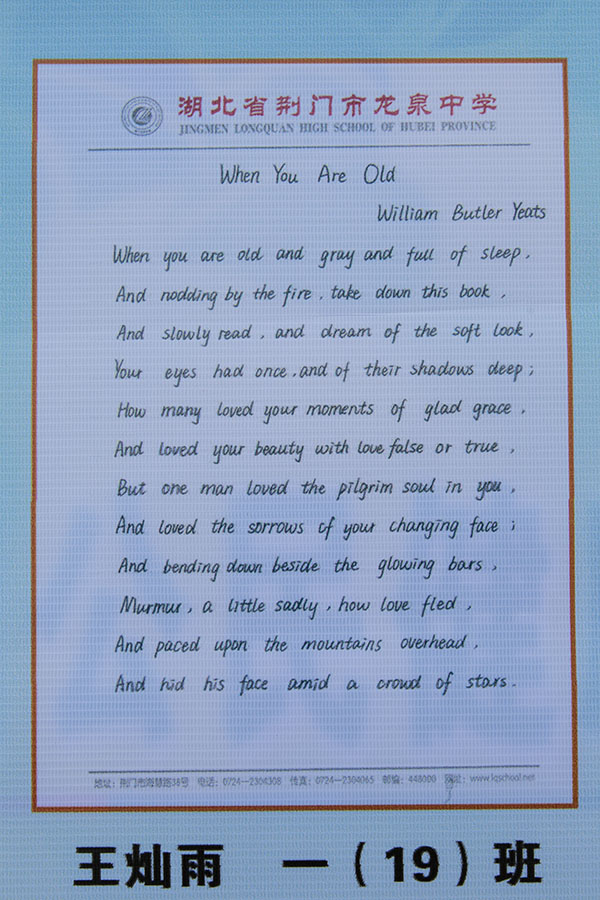 湖北省荆门市龙泉中学
JINGMEN LONGQUAN HIGH SCHOOL OF HUBEI PROVINCE
When You Are Old
William Butler Yeats
When you are old and gray and full of sleep,
And nodding by the fire, take down this book,
And slowly read, and dream of the soft look,
Your eyes had once, and of their shadows deep;
How many loved your moments of glad grace,
And loved your beauty with love false or true,
But one man loved the pilgrim soul in you,
And loved the sorrows of your changing face;
And bending down beside the glowing bars,
Murmur, a little sadly, how love fled,
And paced upon the mountains overhead,
And hid his face amid a crowd of stars.
地址：荆门市海慧路38号 电话：0724—2304308 传真：0724—2304065 邮编：448000 网址：www.lqschool.net
王灿雨 一（19）班